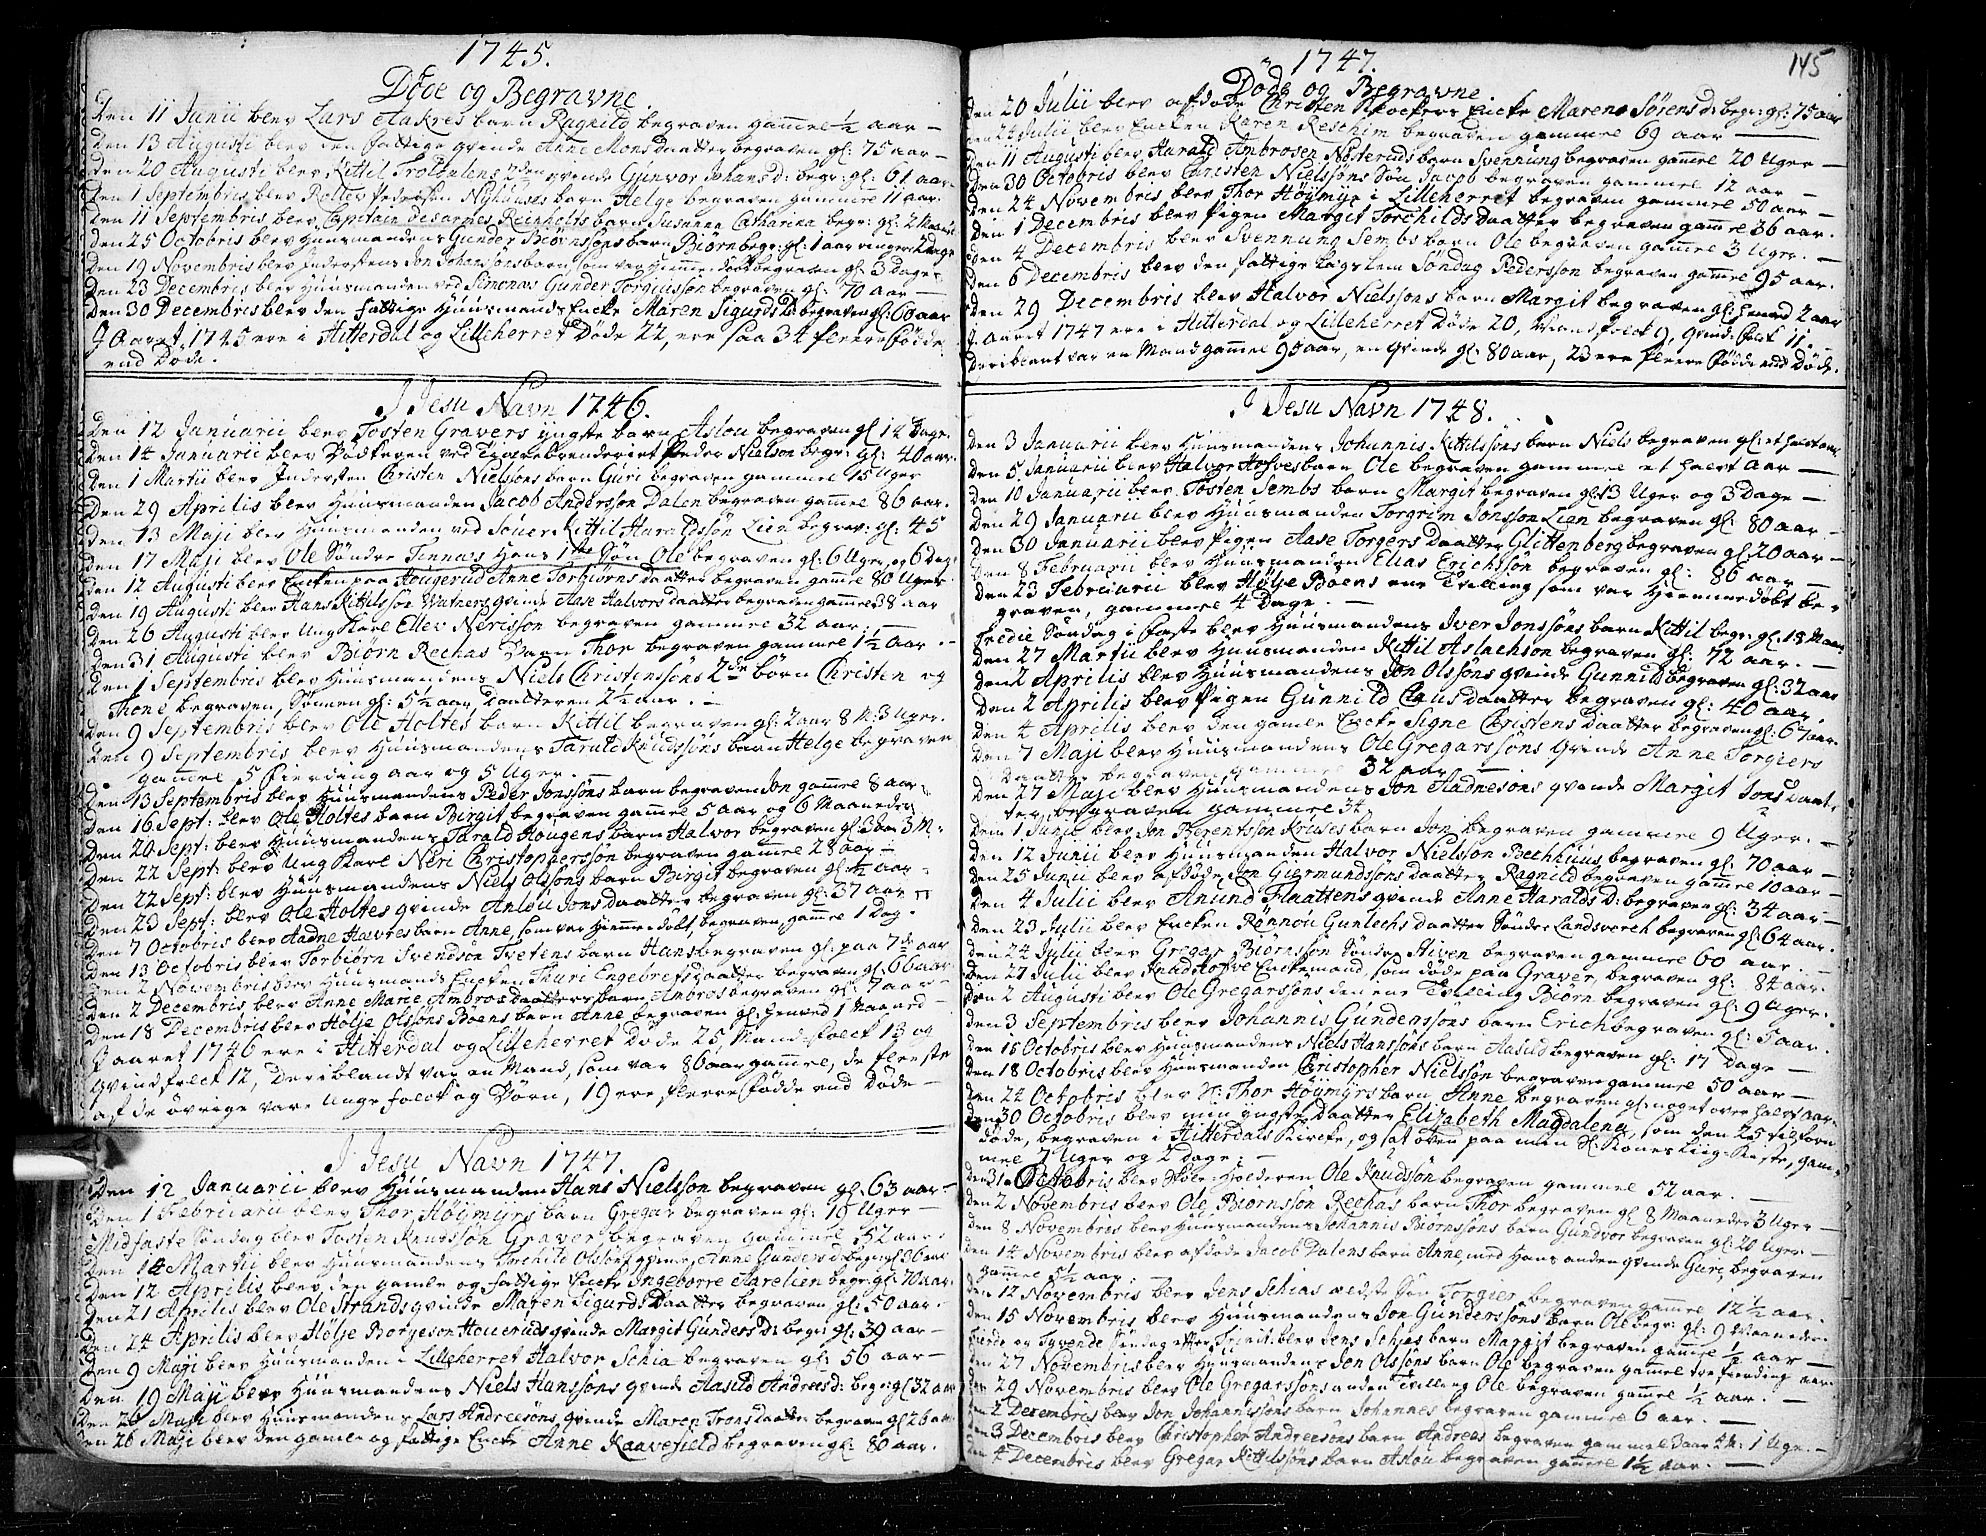 1745.
Døde og Begravne.
Den 11 Junii blev Lars Aakres barn Ragnild begraven gamel ½ aar —
Den 13 Augusti blev den fattige qvinde Anne Monsdaatter begraven gl: 75 aar —
Den 20 Augusti blev Kittil Troldalens 2den qvinde Gunvor Johansd: begr: gl: 61 aar.
Den 1 Septembris blev Rollev Pedersøn Nyhuuses barn Helge begraven gamel 11 aar.
Den 11 Septembris blev Capitain Desarnes Reinhelts barn Susanna Catharina begr: gl: 2
Den 25 Octobris blev Huusmandens Gunder Biørnsøns barn Biørn begr: gl: 1 aar ringere 2 dage
Den 19 Novembris blev Inderstens Jon Johansøns barn, som var hiemmedøbt begraven gl. 3 Dage
Den 23 Decembris blev Huusmanden ved Simonas Gunder Torgiussøn begraven gl: 70 aar —
Den 30 Decembris blev den fattige Huusmands Encke Maren Sigurds D: begraven gl: 60 aar
I Aaret 1745 ere i Hitterdal og Lilleherret Døde 22, ere saa 34 fleere Fødde
end Døde.
I Jesu Navn 1746.
Den 12 Januarii blev Tosten Gravers yngste barn Aslou begraven gl 14 Dage.
Den 14 Januarii blev ved Tiærebrenderiet Peder Nielsøn begr: gl: 40 aar.
Den 1 Martii blev Indersten Christen Nielsøns barn Guri begraven gammel 15 Uger
Den 29 Aprilis blev Huusmanden Jacob Andersøn Dalen begraven gamel 86 aar.
Den 13 Maji blev Huusmanden ved Souer Kittil Haraldssøn Lien begrav: gl: 45
Den 17 Maji blev Ole Søndre Tinnæs Hans 1ste Søn Ole begraven gl: 6 Uger og 6 Dage
Den 12 Augusti blev Encken paa Hougerud Anne Torbiørns daatter begraven gamel 80 Uger
Den 19 Augusti blev Hans Kittilsøn Watners qvinde Aase Halvors daatter begraven gamel 38 aar
Den 26 Augusti blev Ung Karl Ellev Nerissøn begraven gammel 32 aar. —
Den 31 Augusti blev Biørn Rechas Barn Thor begraven gammel 1½ Aar —
Den 1 Septembris blev Huusmandens Niels Christensøns 2de børn Christen og
Thone begraven, Sønnen gl: 5½ aar, Daatteren 2½ aar. —
Den 9 Septembris blev Ole Holtes barn Kittil begraven gl: 2 aar 8 M: 3 Uger.
Den 9 Septembris blev Huusmandens Tarald Knudssøns barn Helge begraven
gamel 5 fierding aar og 5 Uger. —
Den 13 Septembris blev Huusmandens Peder Jonssøns barn begraven Jon gamel 8 aar
Den 16 Sept: blev Ole Holtes barn Birgit begraven gamel 5 aar og 6 Maaneder
Den 20 Sept: blev Huusmandens Tarald Hougens barn Halvor begraven gl: 3 aar 3 M:
Den 22 Sept: blev Ung Karl Neri Christophersøn begraven gamel 28 aar —
Den 22 Sept: blev Huusmandens Niels Olsøns barn Birgit begraven gl: ½ aar —
Den 23 Sept: blev Ole Holtes qvinde Anlou Jonsdaatter begraven gl: 37 aar
Den 7 Octobris blev Aadne Haavres barn Anne, som var Hiemmedøbt, begraven gamel 1 Dag.
Den 13 Octobris blev Torbiørn Svendsøn Tvetens barn Hans begraven gl: paa 7de aar
Den 2 Novembris blev Huusmands Encken Thuri Engebretsdaatter begraven gl: 66 aar
Den 2 Decembris blev Anne Marie Ambrosdaatters barn Ambros begraven gl: 7 aar —
Den 18 Decembris blev Hølje Olssøns Boens barn Anne begraven gl: henved 1 Maaned —
I aaret 1746 ere i Hitterdal og Lilleherret Døde 25, Mandfolck 13 og
qvindfolck 12, Deriblandt var en Mand, som var 86 aar gamel, de fleeste
af de øvrige vare Unge folck og Børn, 19 ere fleere Fødde end Døde —
I Jesu Navn 1747.
Den 12 Januarii blev Huusmanden Hans Nielssøn begraven gl: 63 aar —
Den 1 Februarii blev Thor Høymyrs barn Gregar begraven gl: 10 Uger —
Midfaste Søndag blev Tosten Knudssøn Graver begraven gammel 52 aar.
Den 14 Martii blev Huusmandens Torchild Olssøns qvinde Anne Gunders d: begr: gl: 36 aar
Den 12 Aprilis blev den gamle og fattige Encke Ingeborre Aarelien begr: gl: 70 aar.
Den 21 Aprilis blev Ole Strands qvinde Maren Sigurdsdaatter begraven gl: 50 aar.
Den 24 Aprilis blev Hølje Borgesøn Houeruds qvinde Margit Gunders D: begr: gl: 39 aar —
Den 9 Maji blev Huusmanden i Lilleherret Halvor Schia begraven gl: 56 aar —
Den 19 Maji blev Huusmandens Niels Hanssøns qvinde Aasild Andreæ d: begr: gl 32 aar
Den 26 Maji blev Huusmandens Lars Andreesøns qvinde Maren Tronsdaatter begraven gl: 26 aar
Den 26 Maji blev den gamle og fattige Encke Anne Kaavefield begraven gl: 80 aar.
145
1747.
Døde og Begravne.
Den 20 Julii blev afdøde Christen Encke Maren Sørens d: begr: gl: 75 aar
Den 24 Julii blev Encken Karen Reschim begraven gammel 69 aar —
Den 11 Augusti blev Harald Ambrosen Nøsteruds barn Svennung begraven gamel 20 Uger —
Den 30 Octobris blev Christen Nielssøns Søn Jacob begraven gammel 12 aar —
Den 24 Novembris blev Thor Høymyr i Lilleherret begraven gammel 50 aar —
Den 1 Decembris blev Pigen Margit Torchilds daatter begraven gamel 36 aar.
Den 4 Decembris blev Svennung Sembs barn Ole begraven gamel 3 Uger. —
Den 6 Decembris blev den fattige Lægslem Søndag Pedersson begraven gamel 95 aar.
Den 29 Decembris blev Halvor Nielssøns barn Margit begraven gl: henved 2 aar
I aaret 1747 ere i Hitterdal og Lilleherret Døde 20, Mandfolck 9, Qvindfolck 11.
Deriblant var en Mand gammel 95 aar, en Qvinde gl: 80 aar, 23 ere fleere Fødde end Døde.
I Jesu Navn 1748.
Den 3 Januarii blev Huusmandens Johannis Kittilsøns barn Niels begraven gl: et halvt aar
Den 5 Januarii blev Halvor Hofves barn Ole begraven gammel et halvt aar —
Den 10 Januarii blev Tosten Sembs barn Margit begraven gl: 13 Uger og 3 Dage —
Den 29 Januarii blev Huusmanden Torgrim Jonssøn Lien begraven gl: 80 aar —
Den 30 Januarii blev Pigen Aase Torgers daatter Glittenberg begraven gl: 20 aar —
Den 8 Februarii blev Huusmanden Elias Erichssøn begraven gl: 86 aar —
Den 23 Februarii blev Hølje Boens ene Tvilling som var Hiemmedøbt be-
graven, gammel 4 Dage. —
Tredie Søndag i Faste blev Huusmandens Iver Jonssøns barn Kittil begr: gl: 18 Maan
Den 27 Martii blev Huusmanden Kittil Aslachsøn begraven gl: 72 aar. —
Den 2 Aprilis blev Huusmandens Jon Olssøns qvinde Gunnild begraven gl: 32 aar
Den 2 Aprilis blev Pigen Gunnild Clausdaatter begraven gl: 40 aar
Den 4 Aprilis blev den gamle Encke Signe Christens daatter begraven gl: 67 aar.
Den 7 Maji blev Huusmandens Ole Gregarssøns Qvinde Anne Torgiers
daatter begraven gammel 32 aar —
Den 27 Maji blev Huusmandens Jon Aadnesøns qvinde Margit Jonsdaat-
ter begraven gammel 34
Den 1 Junii blev Jon Berentssøn Kruses barn Jon begraven gammel 9 Uger. —
Den 12 Junii blev Huusmanden Halvor Nielssøn Bechhuus begraven gl: 70 aar —
Den 25 Junii blev afdøde Jon Giermundssøns daatter Ragnild begraven gamel 10 aar —
Den 4 Julii blev Anund Flaattens qvinde Anne Haralds D: begraven gl: 34 aar —
Den 23 Julii blev Encken Rønnou Gunlechs daatter Søndre Landsverch begraven gl: 64 aar.
Den 24 Julii blev Gregar Biørnssøn Søndre Hiven begraven gammel 60 aar. —
Den 27 Julii blev Knud Hofve Enckemand, som døde paa Graver begraven gl: 84 aar.
Den 2 Augusti blev Ole Gregarssøns den ene Tvilling Biørn begraven gl: 9 Uger.
Den 3 Septembris blev Johannis Gunderssøns barn Erich begraven gl: 5 aar.
Den 15 Octobris blev Huusmandens Niels Hanssøns barn Aasild begraven gl: 17 Dage —
Den 18 Octobris blev Huusmanden Christopher Nielssøn begraven gammel 50 aar —
Den 22 Octobris blev Thor Høymyrs barn Anne begraven gl: noget over halvt aar.
Den 30 Octobris blev min yngste Daatter Elizabeth Magdalena, som den 25 tilforn
døde, begraven i Hitterdals Kircke, og sat oven paa min Sl: Kones Liig-Kaste, gam-
mel 7 Uger og 2 Dage: —
Den 31 Octobris blev Ole Knudssøn begraven gammel 52 aar. —
Den 2 Novembris blev Ole Biørnssøn Rechas barn Thor begraven gl 8 Maaneder 3 Uger —
Den 8 Novembris blev Huusmandens Johannis Biørnssøns barn Gundvor begraven gl: 20 Uger —
Den 14 Novembris blev afdøde Jacob Dalens barn Anne, med Hans anden qvinde Guri, begraven
gammel 5½ aar. —
Den 12 Novembris blev Jens Schias ældste Søn Torgier begraven gamel 12½ aar.
Den 15 Novembris blev Huusmandens Jon Gunderssøns barn Ole begr: gl: 9 Maaneder
Fierde og Tyvende Søndag efter Trinit: blev Jens Schias barn Margit begraven gamel ½ aar —
Den 27 Novembris blev Huusmandens Jon Olssøns barn Ole begraven gamel tre fierding aar
Den 29 Novembris blev Ole Gregarssøns anden Tvilling Ole begraven gamel ½ aar. —
Den 2 Decembris blev Jon Johannissøns barn Johannes begraven gammel 6 aar. —
Den 3 Decembris blev Christopher Andreesøns barn Andreas begraven gammel 3 aar 2 M: 1 Uge. —
Den 4 Decembris blev Gregar Kittilssøns barn Aslou begraven gamel 1½ aar. —